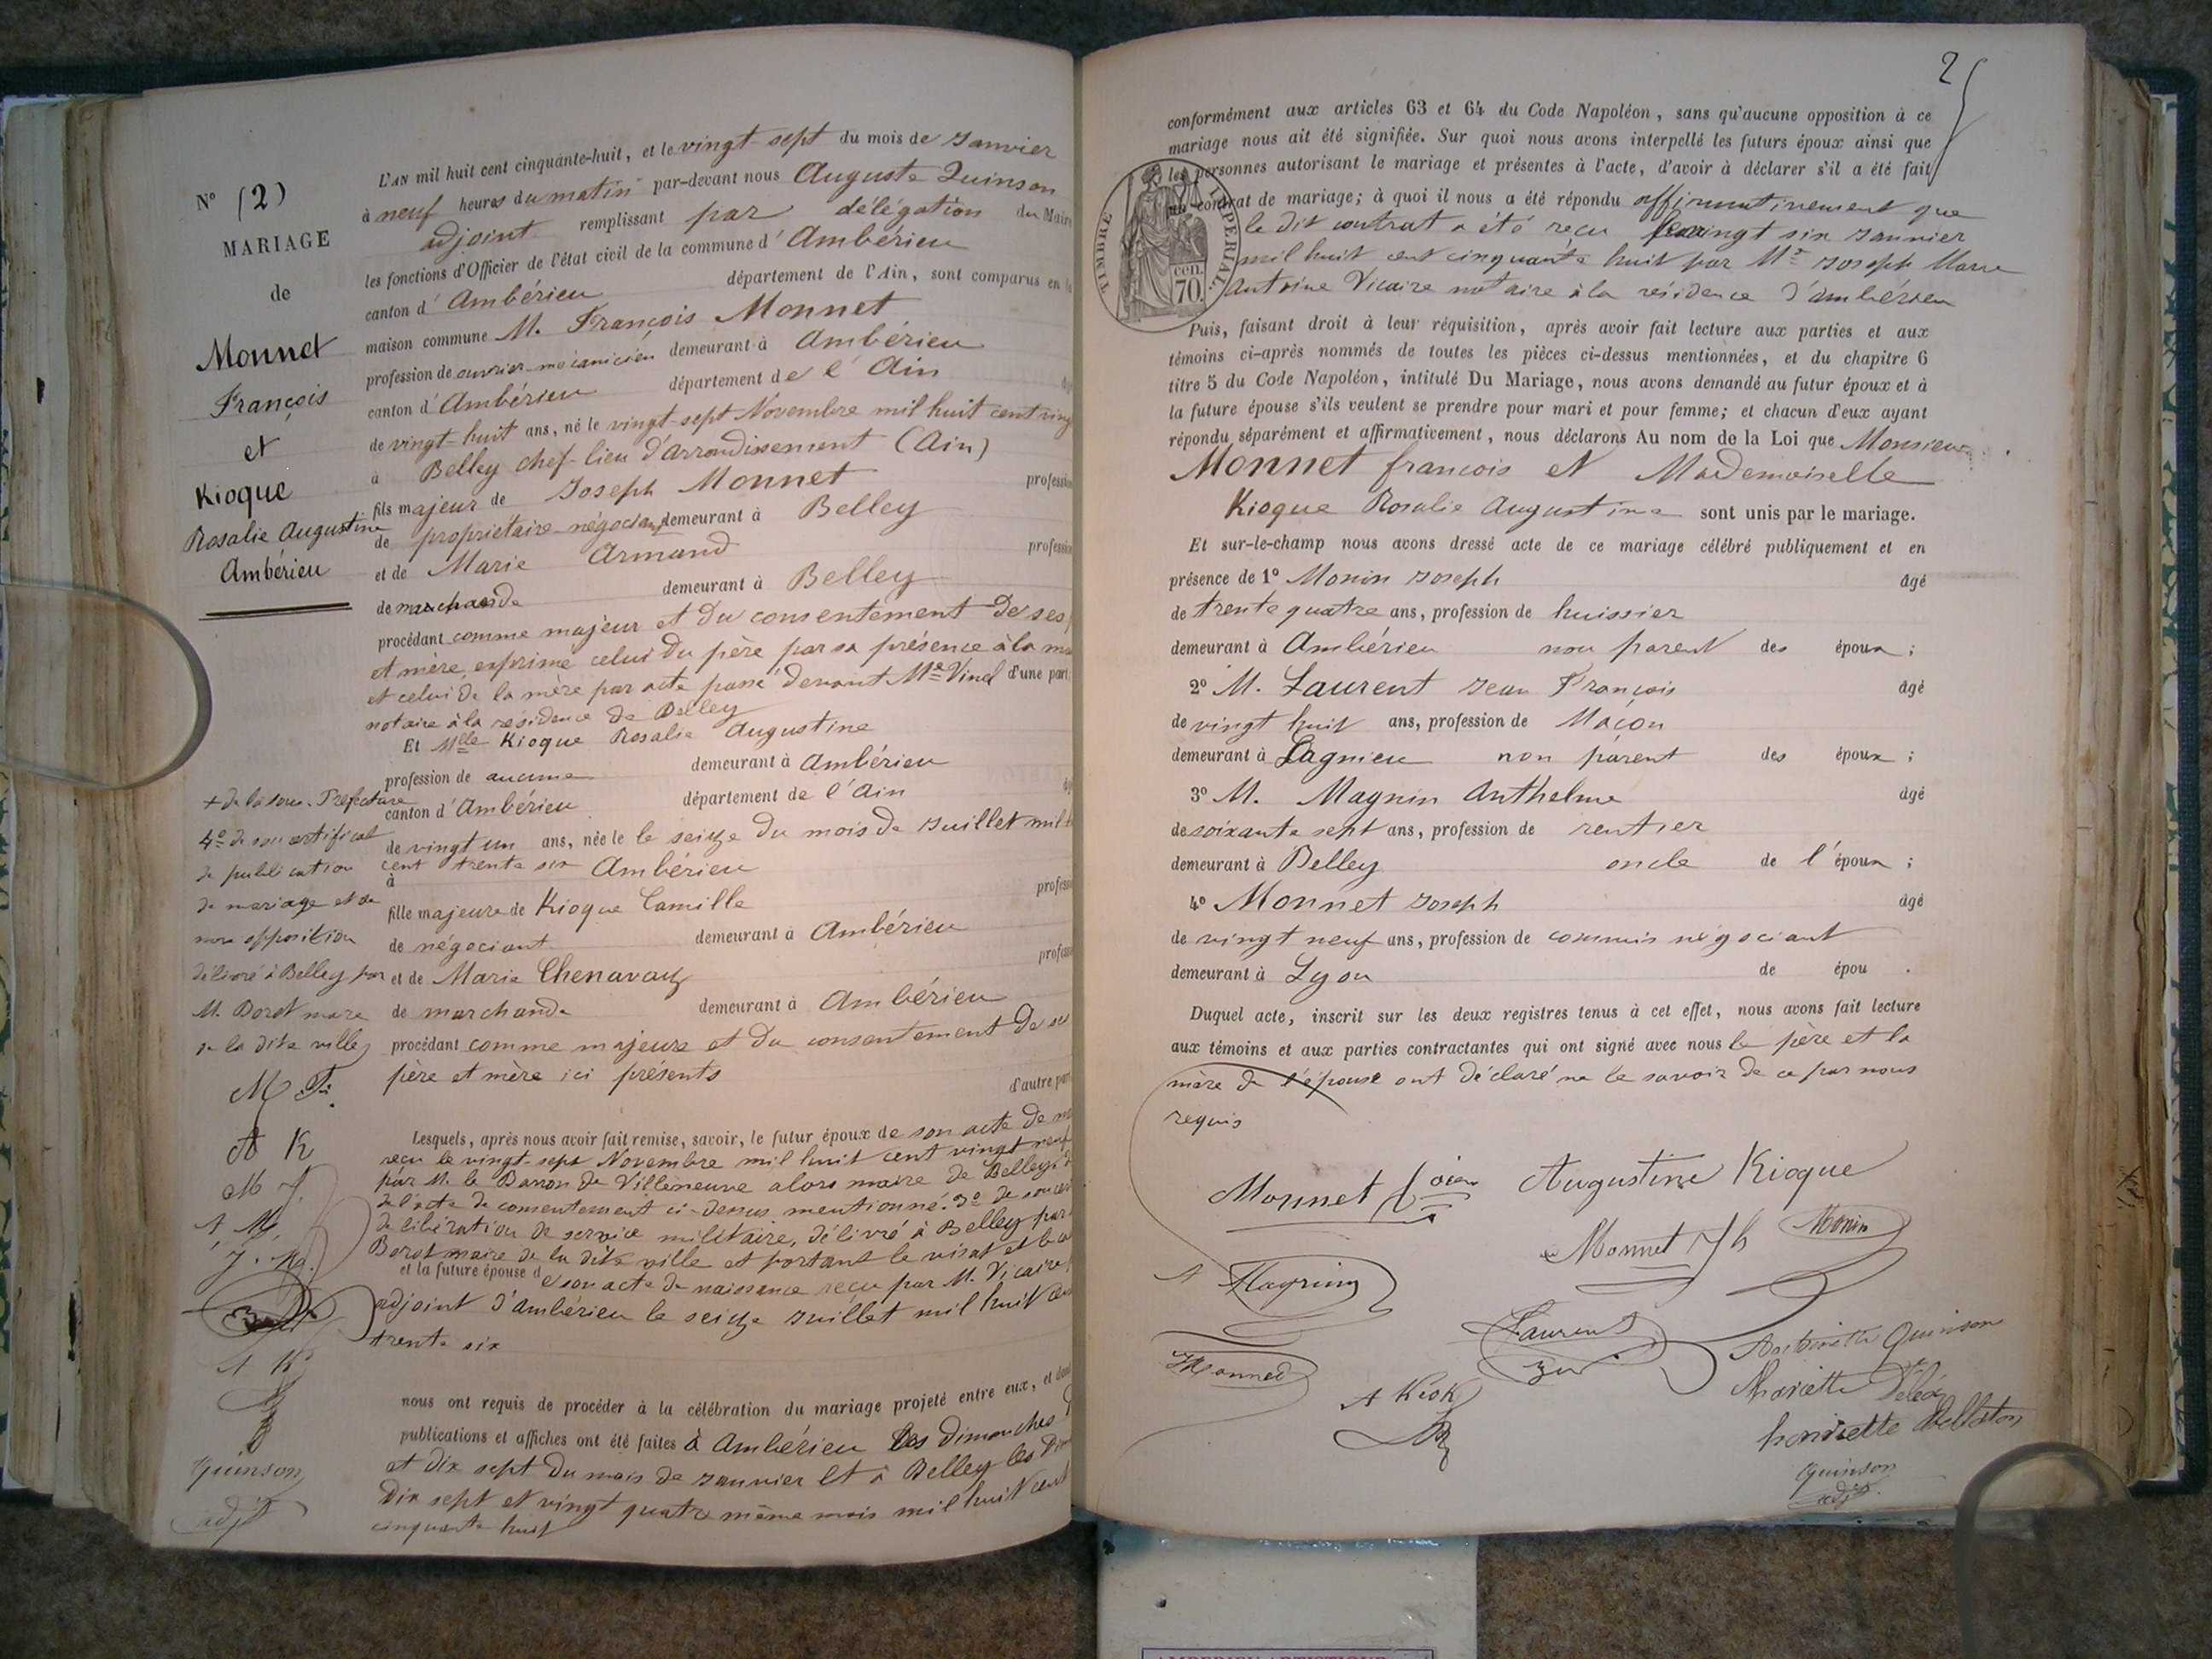 N° (2)
MARIAGE
de
Monnet
François
et
Kioque
Rosalie Augustine
Ambérieu
L'AN mil huit cent cinquante-huit, et le vingt-sept du mois de Janvier
à neuf heures du matin par-devant nous Auguste Quinson
adjoint remplissant par délégation du Maire
les fonctions d'Officier de l'état civil de la commune d'Ambérieu
canton d'Ambérieu département de l'Ain, sont comparus en la
maison commune M. François Monnet
profession de ouvrier-mécanicien demeurant à Ambérieu
canton d'Ambérieu département de l'Ain
de vingt-huit ans, né le vingt-sept Novembre mil huit cent ving
à Belley chef-lieu d'arrondissement (Ain)
fils majeur de Joseph Monnet profession
de propriétaire-négociant demeurant à Belley
et de Marie Armand profession
de marchande demeurant à Belley
procédant comme majeur et du consentement de ses
et mère, exprimé celui du père par sa présence à la
et celui de la mère par acte passé devant Me d'une part
notaire à la résidence de Belley
Et Mlle Kioque Rosalie Augustine
profession de aucune demeurant à Ambérieu
canton d'Ambérieu département de l'Ain
de vingt un ans, née le le seize du mois de Juillet mil
cent trente six Ambérieu
à
fille majeure de Kioque Camille profess
de négociant demeurant à Ambérieu
et de Marie Chenavaz profess
de marchande demeurant à Ambérieu
procédant comme majeure et du consentement de se
père et mère ici présents d'autre part
Lesquels, après nous avoir fait remise, savoir, le futur époux de son acte de
reçu le vingt-sept Novembre mil huit cent vingt neuf
par M. le Baron de Villeneuve alors maire de Belley
de l'acte de consentement ci-dessus mentionné. 3° de son
de libération de service militaire, délivré à Belley par
maire de la dite ville et portant le visa et le
et la future épouse de son acte de naissance reçu par M. Vicaire
adjoint d'Ambérieu le seize Juillet mil huit cent
trente six
nous ont requis de procéder à la célébration du mariage projeté entre eux, et dont
publications et affiches ont été faites à Ambérieu les dimanches
et dix sept du mois de Janvier et à Belley les
dix sept et vingt quatre même mois mil huit cent
cinquante huit
+ de la sous-Préfecture
4° de son certificat
de publication
de mariage et de
non opposition
délivré à Belley par
M. maire
de la dite ville
M F.
A K
M J.
A M.
J. M.
A K
Quinson
adjt
2
conformément aux articles 63 et 64 du Code Napoléon, sans qu'aucune opposition à ce
mariage nous ait été signifiée. Sur quoi nous avons interpellé les futurs époux ainsi que
les personnes autorisant le mariage et présentes à l'acte, d'avoir à déclarer s'il a été fait
un contrat de mariage; à quoi il nous a été répondu affirmativement que
le dit contrat a été reçu le vingt six Janvier
mil huit cent cinquante huit par Me Joseph Marie
Antoine Vicaire notaire à la résidence d'Ambérieu
TIMBRE IMPÉRIAL
70 cen.
Puis, faisant droit à leur réquisition, après avoir fait lecture aux parties et aux
témoins ci-après nommés de toutes les pièces ci-dessus mentionnées, et du chapitre 6
titre 5 du Code Napoléon, intitulé Du Mariage, nous avons demandé au futur époux et à
la future épouse s'ils veulent se prendre pour mari et pour femme; et chacun d'eux ayant
répondu séparément et affirmativement, nous déclarons Au nom de la Loi que Monsieur
Monnet françois et Mademoiselle
Kioque Rosalie Augustine sont unis par le mariage.
Et sur-le-champ nous avons dressé acte de ce mariage célébré publiquement et en
présence de 1° Monin Joseph âgé
de trente quatre ans, profession de huissier
demeurant à Ambérieu non parent des époux;
2° M. Laurent Jean François âgé
de vingt huit ans, profession de Maçon
demeurant à Lagnieu non parent des époux;
3° M. Magnin Anthelme âgé
de soixante sept ans, profession de rentier
demeurant à Belley oncle de l'époux;
4° Monnet Joseph âgé
de vingt neuf ans, profession de commis négociant
demeurant à Lyon de épou .
Duquel acte, inscrit sur les deux registres tenus à cet effet, nous avons fait lecture
aux témoins et aux parties contractantes qui ont signé avec nous le père et la
mère de l'épouse ont déclaré ne le savoir de ce par nous
requis
Monnet fçois Augustine Kioque
Monnet Jh Monin
A Magnin
Laurent
JMonnet
A Kiok
Antoinette Quinson
Mariette
henriette
Quinson
adjt